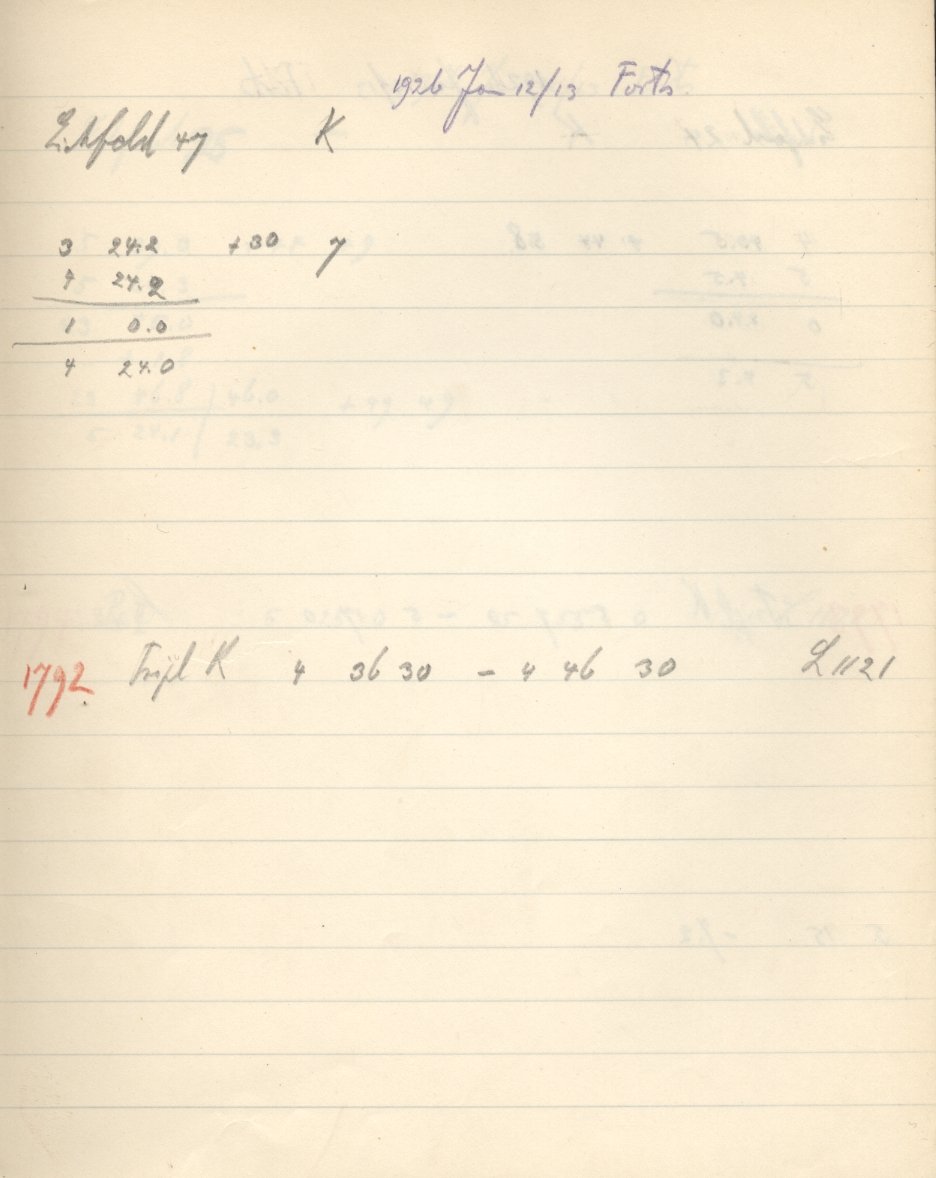 1926 Jan 12/13 Forts.
Eichfeld 47 K
3 24.2 +30 7
4 24.2
1 0.0
4 24.0
1792 Tripl K 4 36 30 – 4 46 30 L 1121